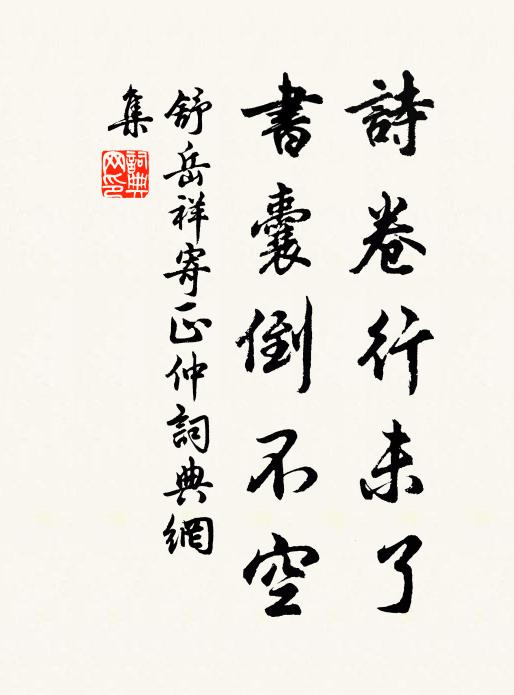 詩卷行未了
書囊倒不空
舒岳祥寄正仲詞典網
集
詞典网印